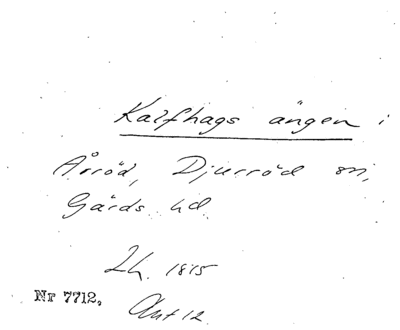 Kalfhags ängen i
Årröd, Djurröd sn,
Gärds hd.
Lh. 1815
Nr 7712, Akt 12